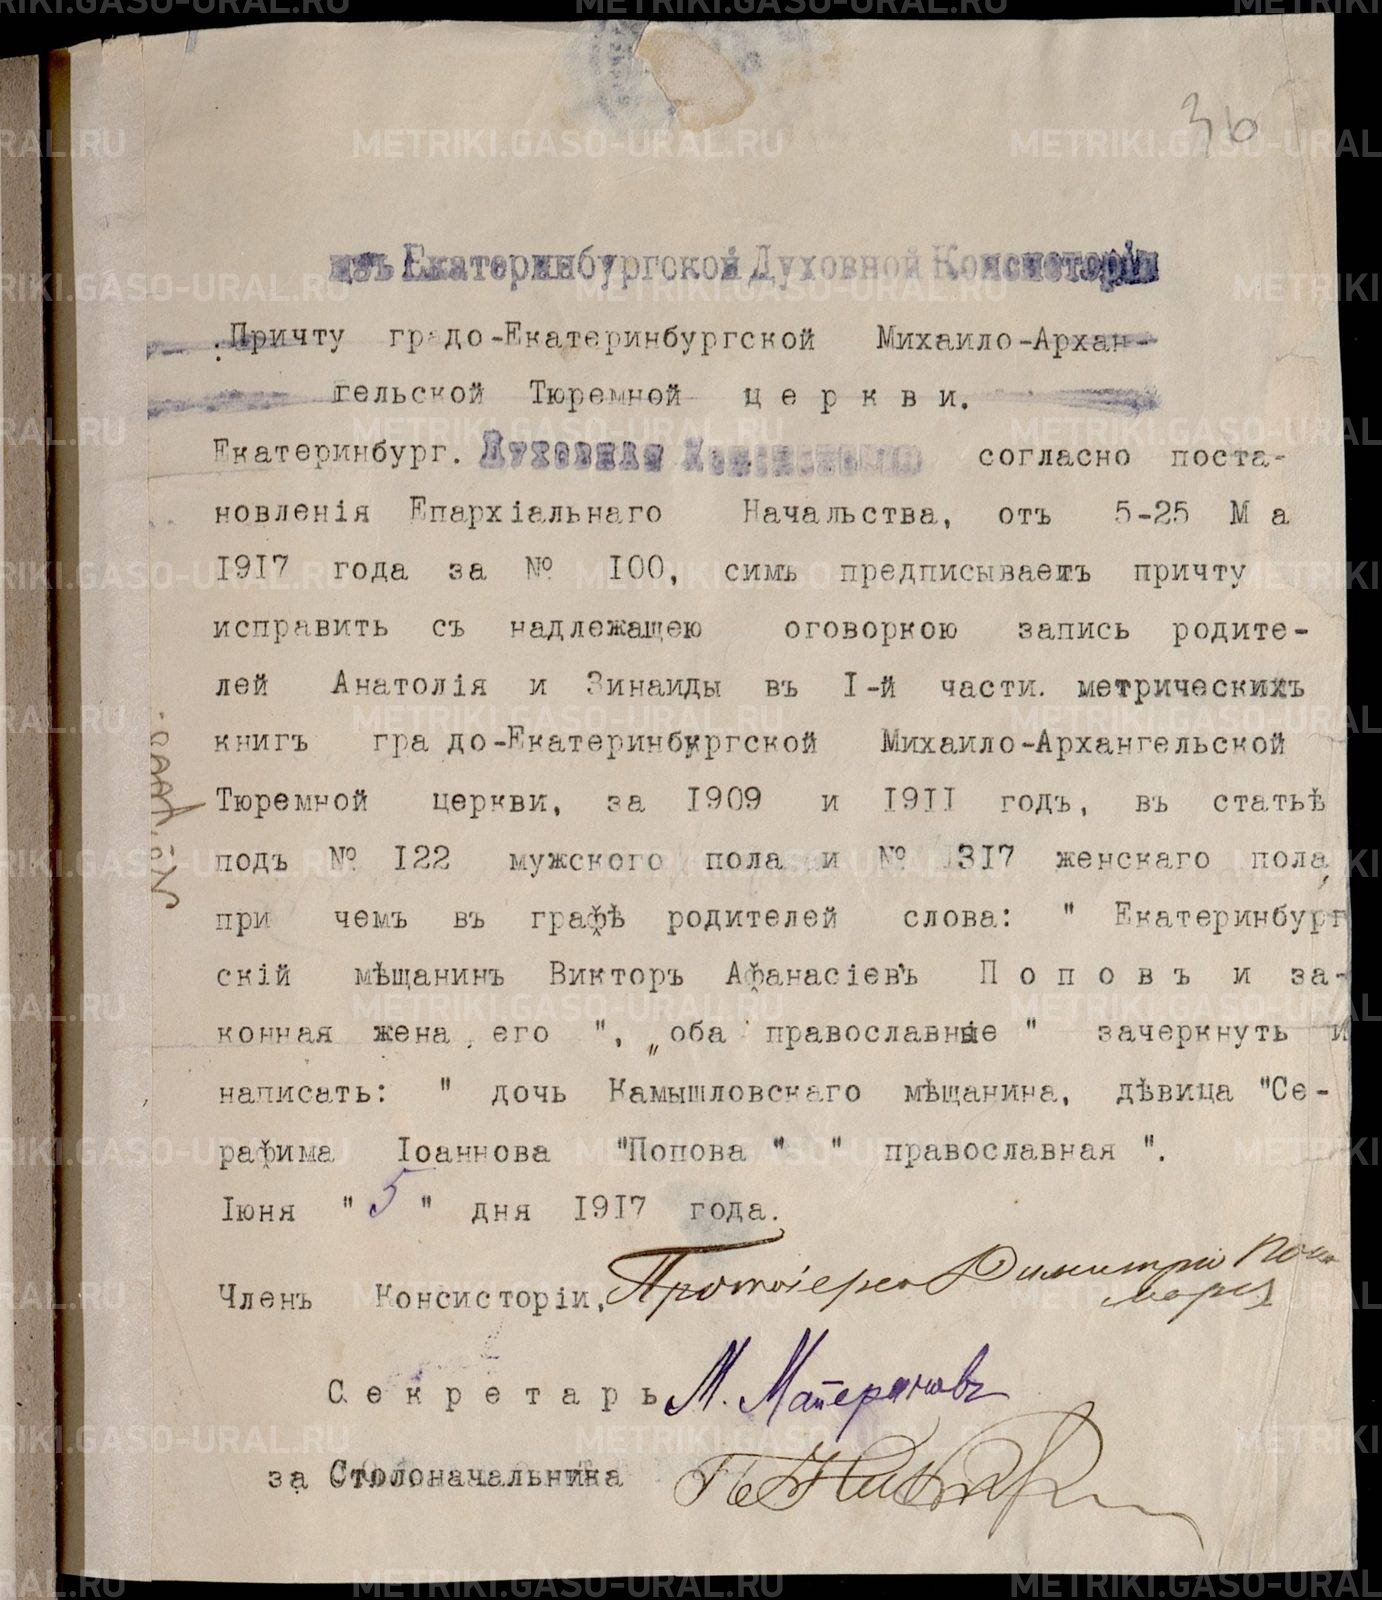 36
изъ Екатеринбургской Духовной Консисторіи
Причту градо-Екатеринбургской Михаило-Архан-
гельской Тюремной церкви.
Екатеринбург. Духовная Консисторія согласно поста-
новленія Епархіальнаго Начальства, отъ 5-25 Ма
1917 года за № 100, симъ предписываетъ причту
исправить съ надлежащею оговоркою запись родите-
лей Анатолія и Зинаиды въ I-й части метрическихъ
книгъ градо-Екатеринбургской Михаило-Архангельской
Тюремной церкви, за 1909 и 1911 годъ, въ статьѣ
подъ № 122 мужского пола и № 317 женскаго пола,
при чемъ въ графѣ родителей слова: " Екатеринбург
скій мѣщанинъ Викторъ Афанасіевъ Поповъ и за-
конная жена его ", „оба православные " зачеркнуть и
написать: " дочь Камышловскаго мѣщанина, дѣвица "Се-
рафима Іоаннова "Попова " " православная ".
Іюня " 5 " дня 1917 года.
Членъ Консисторіи, Протоіерей Димитрій
Секретарь М. Матерановъ
за Столоначальника
METRIKI.GASO-URAL.RU